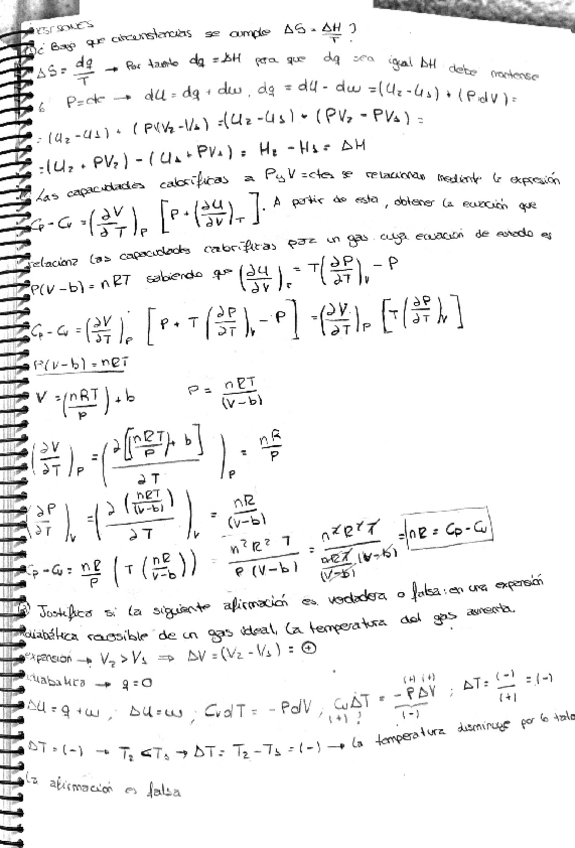 CESIONES
1) ¿Bajo que circunstancias se cumple ΔS = ΔH/T ?
ΔS = dq/T → Por tanto dq = ΔH para que dq sea igual ΔH debe mantenerse
P=cte → dU = dq + dw, dq = dU - dw = (U2-U1) + (PdV) =
= (U2-U1) + (P(V2-V1) = (U2-U1) + (PV2 - PV1) =
= (U2 + PV2) - (U1 + PV1) = H2 - H1 = ΔH
Las capacidades caloríficas a P y V = ctes se relacionan mediante la expresión
Cp - Cv = (∂V/∂T)P [P + (∂U/∂V)T]. A partir de esta, obtener la ecuación que
relaciona las capacidades caloríficas para un gas cuya ecuación de estado es
P(V-b) = nRT sabiendo que (∂U/∂V)T = T(∂P/∂T)V - P
Cp - Cv = (∂V/∂T)P [P + T(∂P/∂T)V - P] = (∂V/∂T)P [T(∂P/∂T)V]
P(V-b) = nRT
V = (nRT/P) + b P = nRT/(V-b)
(∂V/∂T)P = (∂[(nRT/P) + b]/∂T)P = nR/P
(∂P/∂T)V = (∂(nRT/(V-b))/∂T)V = nR/(V-b)
Cp - Cv = nR/P (T(nR/(V-b))) = n²R²T/P(V-b) = n²R²T/(nRT/(V-b))(V-b) = nR = Cp - Cv
3) Justifica si la siguiente afirmación es verdadera o falsa: en una expansión
adiabática reversible de un gas ideal, la temperatura del gas aumenta.
expansión → V2 > V1 ⇒ ΔV = (V2 - V1) = ⊕
adiabática → q = 0
ΔU = q + w, ΔU = w, CvdT = -PdV, CvΔT = -PΔV ; ΔT = (-)/(+) = (-)
(+) (+) (+) (-)
ΔT = (-) → T2 < T1 → ΔT = T2 - T1 = (-) → La temperatura disminuye por lo tanto
la afirmación es falsa